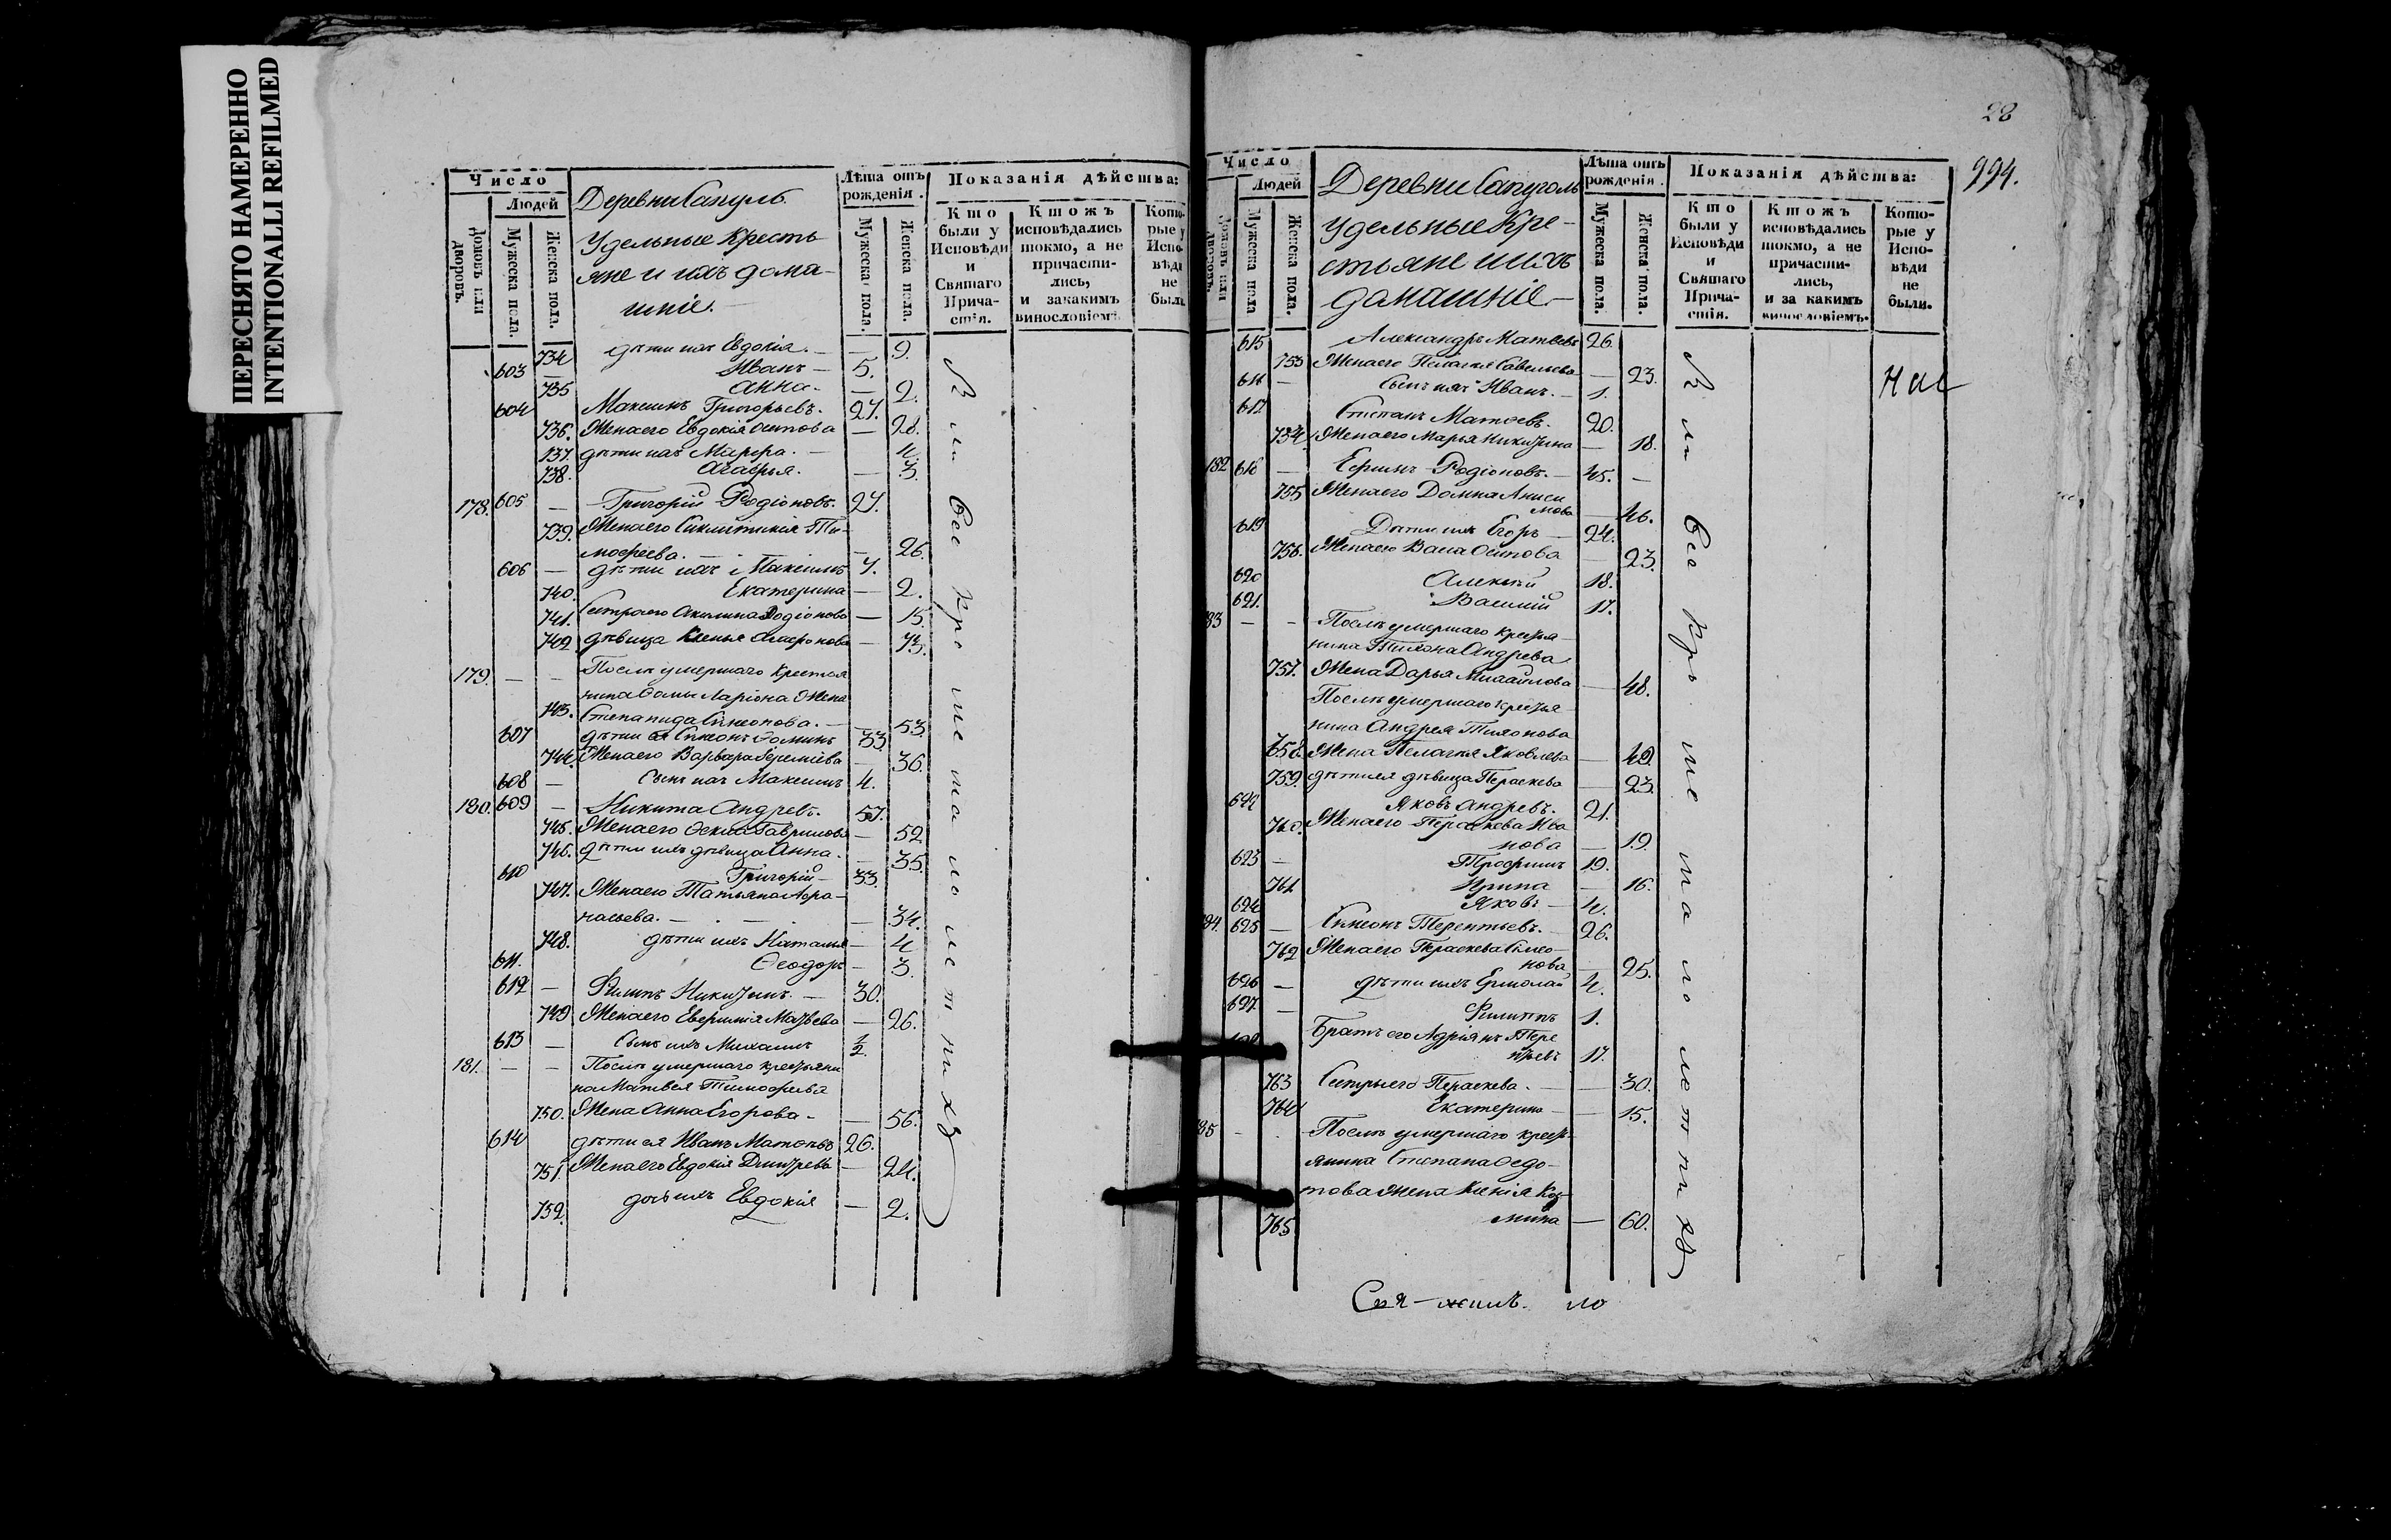 ПЕРЕСНЯТО НАМЕРЕННО
INTENTIONALLI REFILMED
Число
Людей
Домовъ или дворовъ.
Мужеска пола.
Женска пола.
Деревни Сапуль
Удельные кресть
яне и ихъ дома-
шніе.
Лѣта отъ рожденія.
Мужеска пола.
Женска пола.
Показанія дѣйства:
Кто были у Исповѣди и Святаго Причастія.
Ктожъ исповѣдались токмо, а не причастились, и закакимъ винословіемъ
Которые у Исповѣди не были
734 дѣти ихъ Евдокія. — 9.
603 — Иванъ — 5.
735 Анна. — 2.
604 Максимъ Григорьевъ. 27.
736. Жена его Евдокія Осипова — 28.
737. дѣти ихъ Марфа. — 4.
738. Агафья. — 3.
178. 605 — Григорій Родіоновъ. 27.
739. Жена его Синклитикія Ти-
мофеева. — 26.
606 — дѣти ихъ Максимъ 7.
740. Екатерина — 2.
741. Сестра его Акилина Родіонова — 15.
742. дѣвица Ксенья Агафонова — 73.
179. — — Послѣ умершаго крестья
нина Ѳомы Ларіона жена
743. Степанида Симеонова. — 53.
607 дѣти ея Симеонъ Ѳоминъ 33.
744. Жена его Варвара Еремѣева — 36.
608 — Сынъ ихъ Максимъ 4.
180. 609 — Никита Андревъ. 57.
745. Жена его Ѳекла Гаврилова — 52.
746. дѣти ихъ дѣвица Анна. — 35.
610 Григорій — 33.
747. Жена его Татьяна Афа-
насьева. — 34.
748. дѣти ихъ Наталья — 4
611. Ѳеодоръ — 3.
612 — Филипъ Никитинъ. — 30.
749 Жена его Евфимія Матвеева — 26.
613 — Сынъ ихъ Михаилъ 1/2.
181. — — Послѣ умершаго крестьяни
на Матвея Тимофеева
750. Жена Анна Егорова — 56.
614 дѣти ея Иванъ Матвеевъ 26.
751. Жена его Евдокія Дмитрева — 24.
752. дочь ихъ Евдокія — 2.
все кроме малолетнихъ
28
994.
Число
Людей
Домовъ или дворовъ.
Мужеска пола
Женска пола.
Деревни Сапуголь
Удельные кре-
стьяне и ихъ
домашніе
Лѣта отъ рожденія.
Мужеска пола.
Женска пола.
Показанія дѣйства:
Кто были у Исповѣди и Святаго Причастія.
Ктожъ исповѣдались токмо, а не причастились, и за какимъ винословіемъ.
Которые у Исповѣди не были.
615 Александръ Матвеевъ 26.
753 Жена его Пелагия Савельева — 23.
616 — Сынъ ихъ Иванъ. — 1.
617 Степанъ Матвеевъ. 20.
754 Жена его Марья Никитина — 18.
182 618 — Ефимъ Родіоновъ. — 45. —
755 Жена его Домна Аниси
мова — 46.
619 Дѣти ихъ Егоръ — 24.
756. Жена его Васа Осипова — 23.
620 Алексѣй 18.
621. Василій 17.
83 — — Послѣ умершаго крестья-
нина Тихона Андрева
757. Жена Дарья Михайлова — 48.
Послѣ умершаго крестья-
нина Андрея Тихонова
758. Жена Пелагея Яковлева — 49.
759. дѣти ея дѣвица Параскева — 23.
622 Яковъ Андревъ. 21.
760. Жена его Параскева Ива
нова — 19.
623 — Трофимъ 19.
761 Ирина — 16.
624 Яковъ — 4.
84. 625 — Симеонъ Терентьевъ. — 26.
762 Жена его Параскева Симео-
нова — 25.
626 — дѣти ихъ Ермолай 4.
627. — Филиппъ 1.
Братъ его Адріянъ Тере
нтьевъ 17.
763 Сестры его Параскева. — 30.
764 Екатерина — 15.
85 — Послѣ умершаго крест-
янина Степана Ѳедо-
това жена Ксенія Коз-
765 мина — 60.
все кроме малолетнихъ